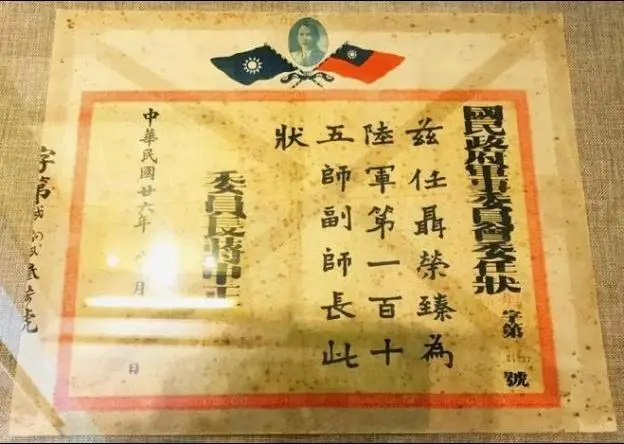 國民政府軍事委員會委任狀
字第 號
茲任聶榮臻為
陸軍第一百十
五師副師長此
狀
委員長蔣中正
中華民國廿六年八月 日
字第